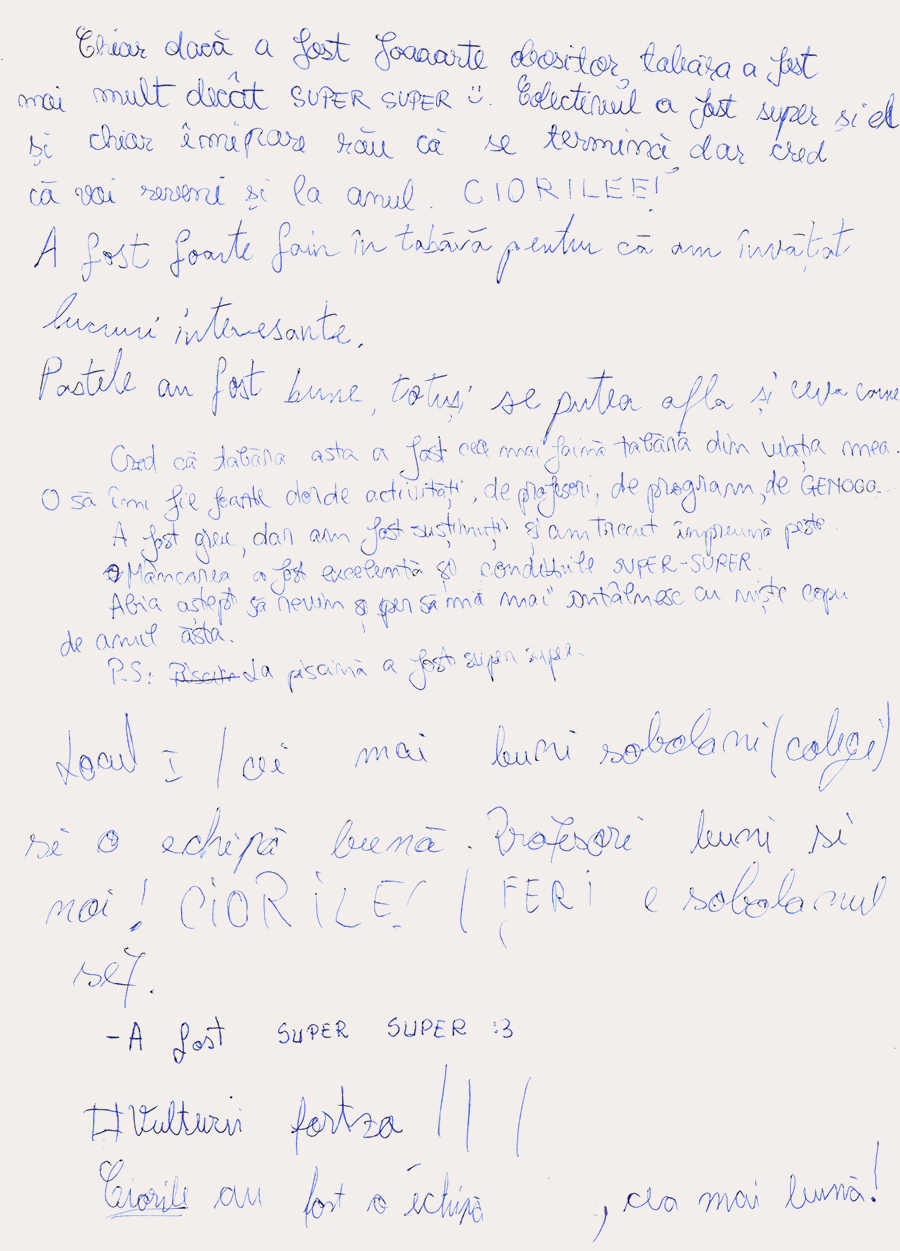 Chiar dacă a fost foaaarte obositor, tabăra a fost
mai mult decât SUPER SUPER :). Colectivul a fost super și el
și chiar îmi pare rău că se termină, dar cred
că voi reveni și la anul. CIORILEE!
A fost foarte fain în tabără pentru că am învățat
lucruri interesante.
Pastele au fost bune, totuși se putea afla și ceva carne
Cred că tabăra asta a fost cea mai faină tabără din viața mea.
O să îmi fie foarte dor de activități, de profesori, de program, de GENOGO.
A fost greu, dar am fost susținuți și am trecut împreună peste.
Mâncarea a fost excelentă și condițiile SUPER-SUPER.
Abia aștept să revin și sper să mă mai întâlnesc cu niște copii
de anul ăsta.
P.S: La piscină a fost super super.
Locul I / cei mai buni sobolani (colegi)
si o echipă bună. Profesori buni si
noi! CIORILE! / FERI e sobolanul
sef.
-A fost SUPER SUPER :3
#Vulturii fortza | | |
Ciorile au fost o echipă , cea mai bună!